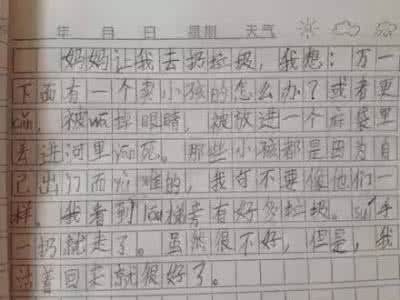 年 月 日 星期 天气
妈妈让我去扔垃圾，我想：万一
下面有一个卖小孩的怎么办？或者更
cǎn，被wā掉眼睛，被放进一个麻袋里
丢进河里yān死。那些小孩都是因为自
己出门而 难的，我可不要像他们一
样。我看到 梯旁有好多垃圾。suí手
一扔就走了。虽然很不好，但是，我
活着回来就很好了。